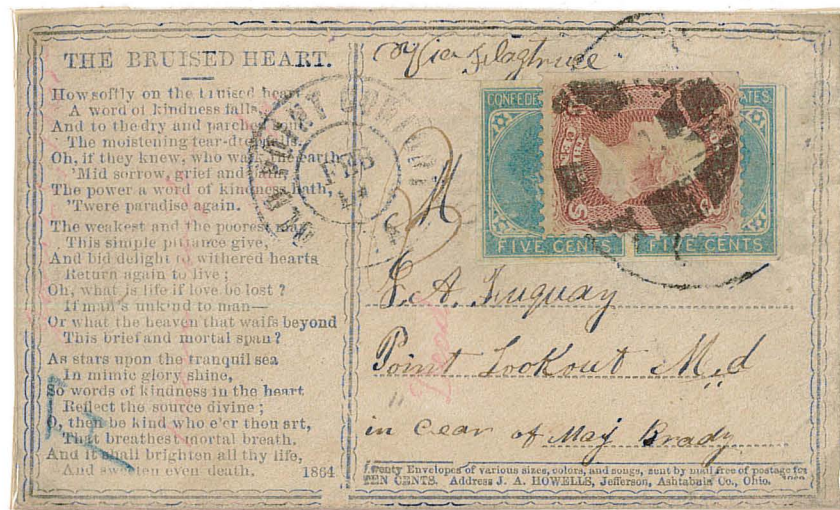 THE BRUISED HEART.
How softly on the bruised heart
A word of kindness falls,
And to the dry and parched
The moistening tear-drop
Oh, if they knew, who walk the earth
'Mid sorrow, grief and
The power a word of kindness hath,
'Twere paradise again.
The weakest and the poorest may
This simple pittance give,
And bid delight to withered hearts
Return again to live;
Oh, what is life if love be lost?
If man's unkind to man—
Or what the heaven that waits beyond
This brief and mortal span?
As stars upon the tranquil sea
In mimic glory shine,
So words of kindness in the heart
Reflect the source divine;
O, then be kind who e'er thou art,
That breathest mortal breath.
And it shall brighten all thy life,
And sweeten even death.
1864
via Flagtruce
OLD POINT COMFORT
FEB
CONFEDE
ATES
FIVE CENTS
FIVE CENTS
3
M
Fuquay
Point Lookout Md
in cear of Maj Brady
Twenty Envelopes of various sizes, colors, and songs, sent by mail free of postage for
TEN CENTS. Address J. A. HOWELLS, Jefferson, Ashtabula Co., Ohio.